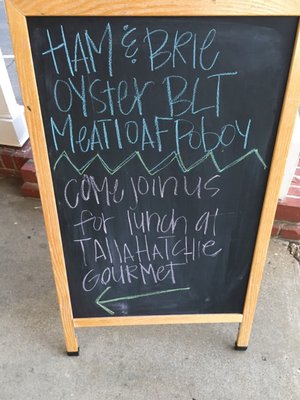 HAM & BRIE
OYSTER BLT
MEATLOAF POBOY
COME JOIN US
for lunch at
TALLAHATCHIE
GOURMET